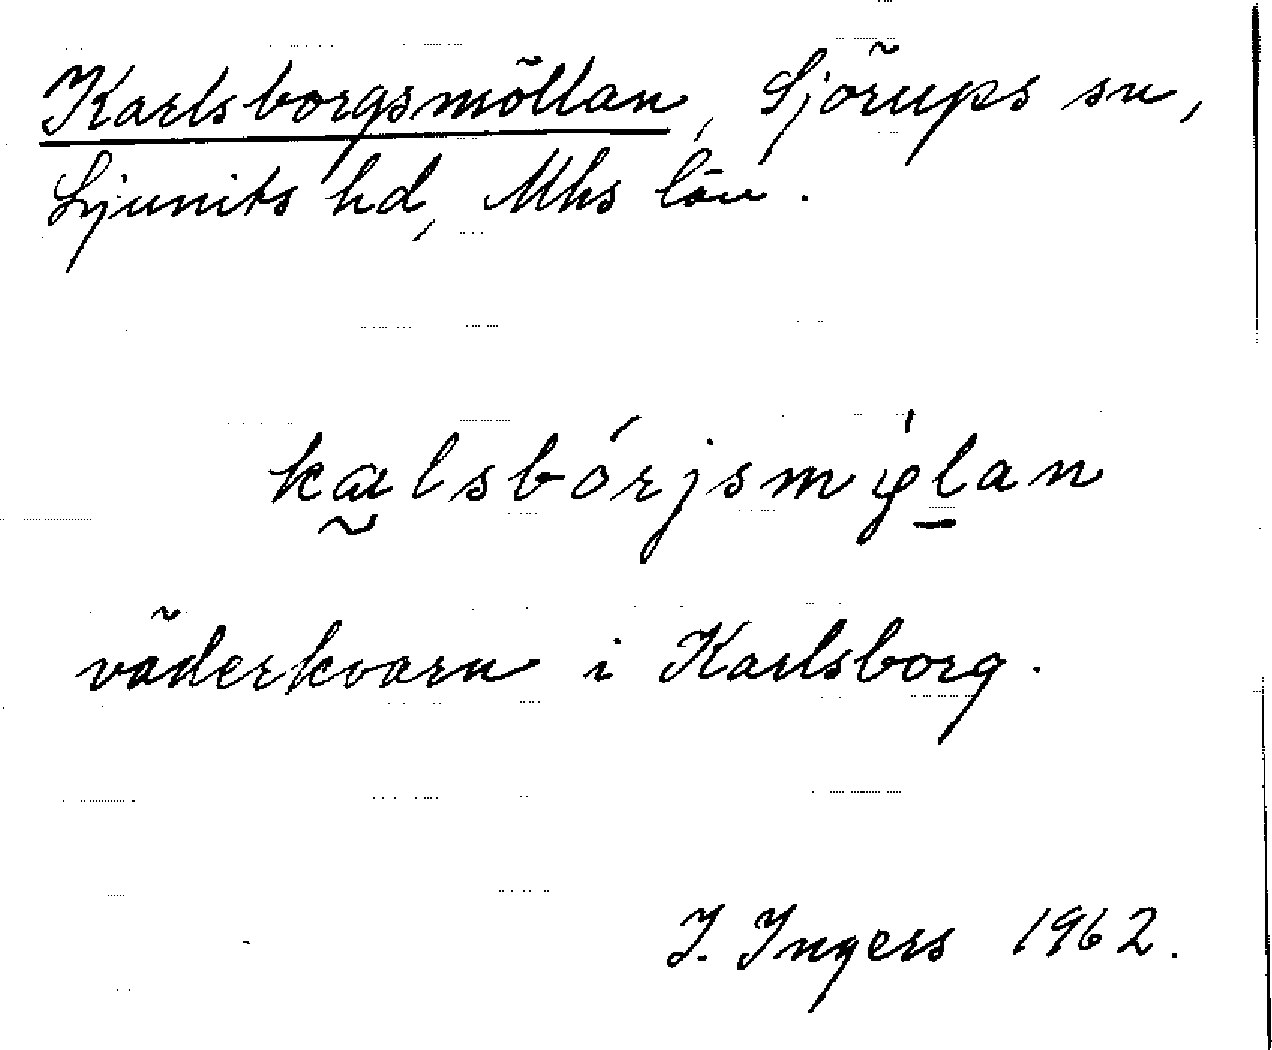 Karlsborgsmöllan, Sjörups sn,
Ljunits hd, Mhs län.
kalsbórjsmølan
väderkvarn i Karlsborg.
I. Ingers 1962.